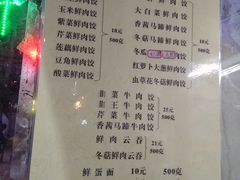 玉米鲜肉饺
紫菜鲜肉饺
芹菜鲜肉饺
莲藕鲜肉饺
豆角鲜肉饺
酸菜鲜肉饺
18元
500克
大白菜鲜肉饺
香茜马蹄鲜肉饺
冬菇马蹄鲜肉饺
冬菇鲜肉饺
冬瓜
红萝卜大葱鲜肉饺
虫草花冬菇鲜肉饺
18元
500克
韭菜牛肉饺
韭王牛肉饺
芹菜牛肉饺
香茜马蹄牛肉饺
25元
500克
鲜肉云吞
冬菇鲜肉云吞
21元
500克
鲜蛋面 10元 500克